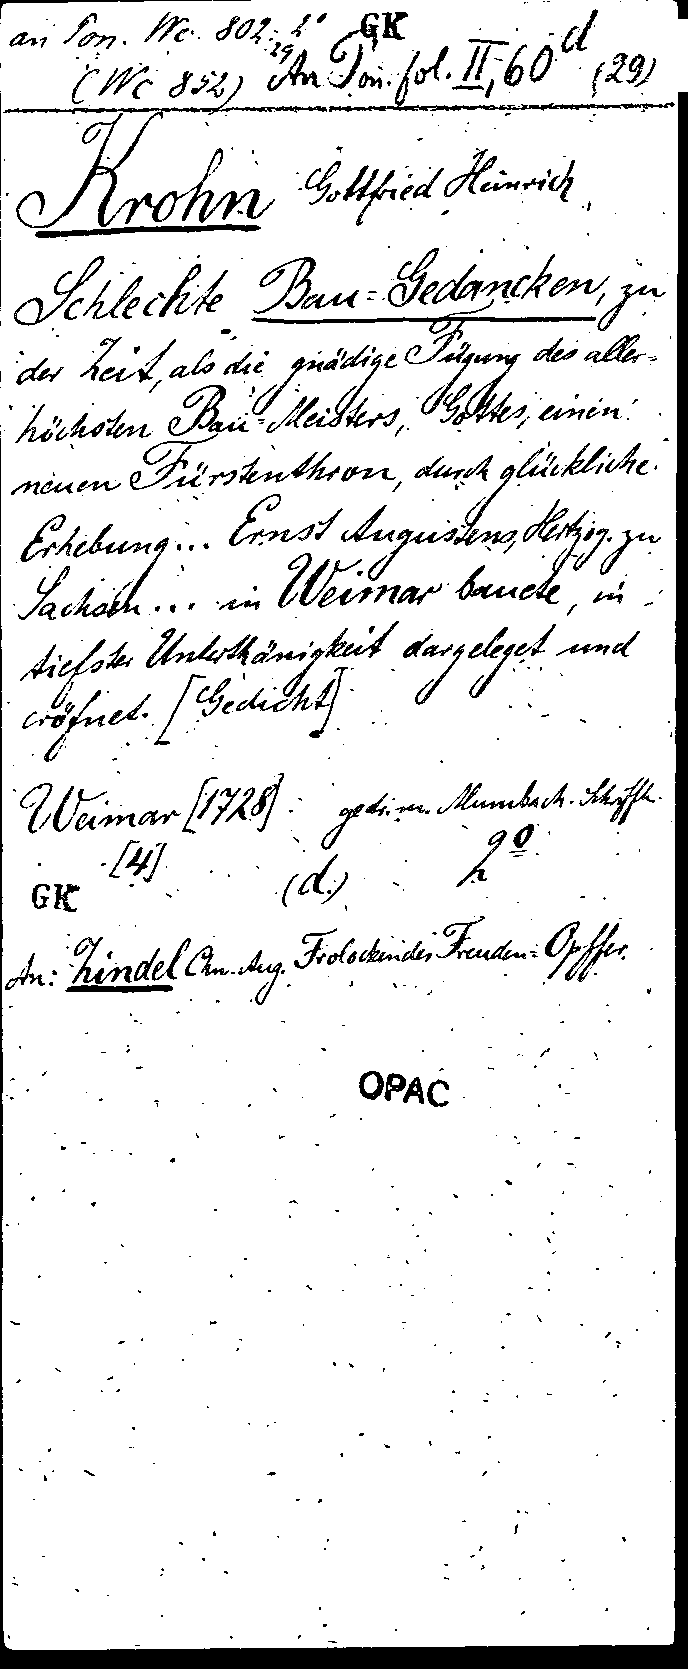 an Pon. Wc. 802. 2° GK
29
(Wc 852) An Pon. fol. II, 60 d (29)
Krohn Gottfried Heinrich
Schlechte Bau=Gedancken, zu
der Zeit, als die gnädige Fügung des aller=
höchsten Bau=Meisters, Gottes, einen
neuen Fürstenthron, durch glückliche
Erhebung... Ernst Augustens, Hertzog zu
Sachsen... in Weimar bauete, in
tiefster Unterthänigkeit dargeleget und
eröfnet. [Gedicht]
Weimar [1728] gedr. m. Mumbach. Schrifft.
[4] (d.) 2°
GK
An: Zindel Chn. Aug. Frolockendes Freuden=Opffer.
OPAC